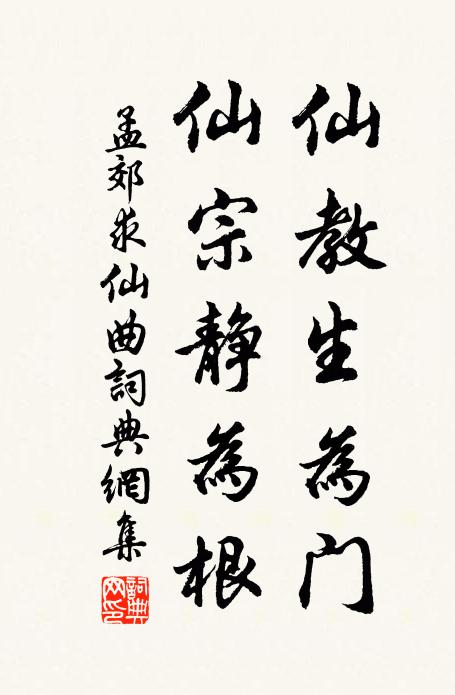 仙教生為门
仙宗静為根
孟郊求仙曲詞典網集
詞典
网印